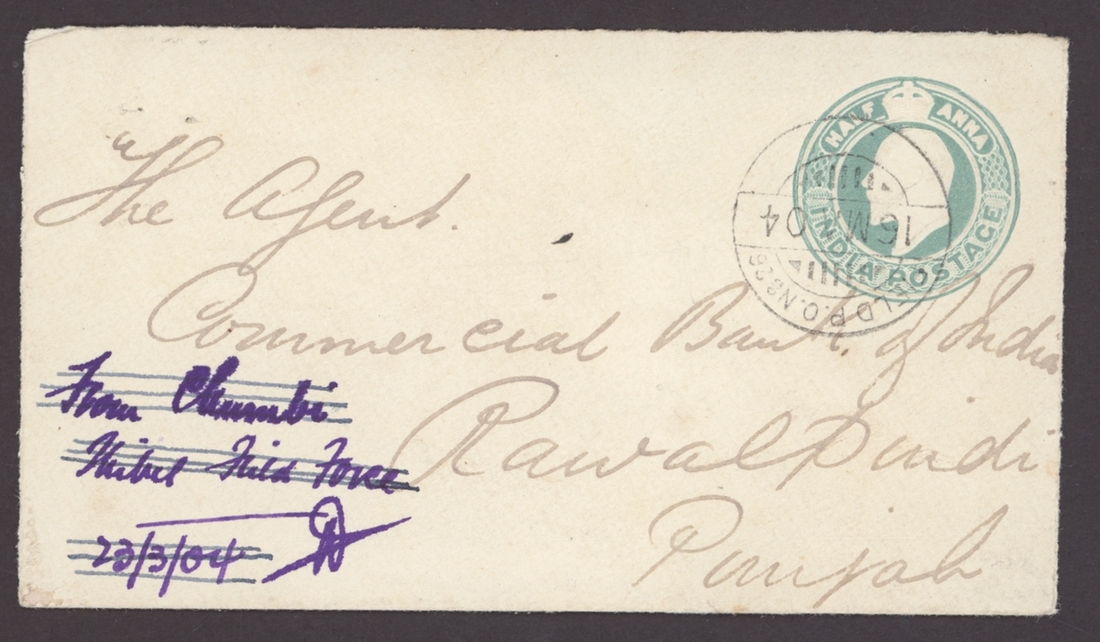 HALF ANNA
INDIA POSTAGE
16 M 04
FIELD P.O. No 26
"The Agent.
Commercial Bank of India
Rawalpindi
Punjab
From Chumbi
Thibet Field Force
23/3/04